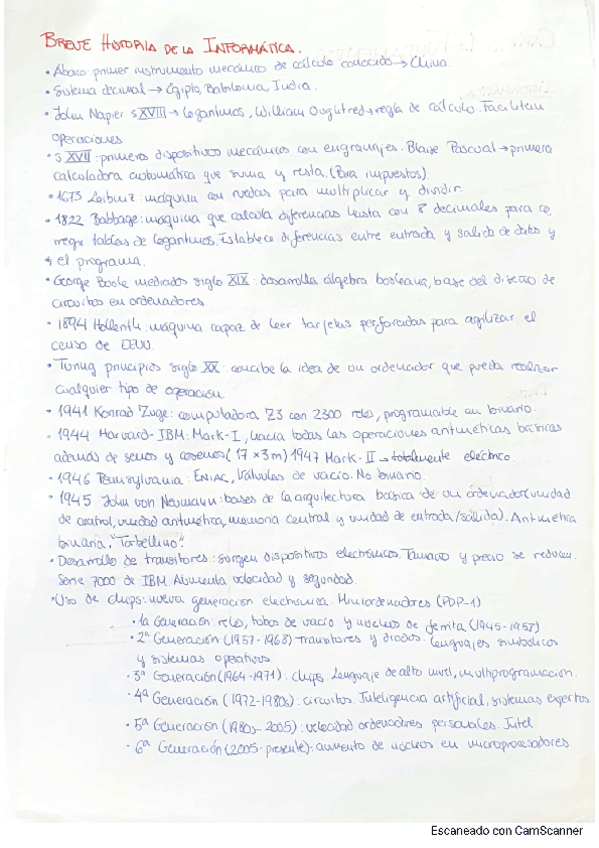 BREVE HISTORIA DE LA INFORMÁTICA.
• Ábaco primer instrumento mecánico de cálculo conocido → China.
• Sistema decimal → Egipto, Babilonia, India.
• John Napier s XVIII → logaritmos, William Oughtred → regla de cálculo. Facilitan
operaciones
• s XVII: primeros dispositivos mecánicos con engranajes. Blaise Pascual → primera
calculadora automática que suma y resta. (Para impuestos).
• 1673 Leibniz: máquina con ruedas para multiplicar y dividir.
• 1822 Babbage: maquina que calcula diferencias hasta con 8 decimales para co
rregir tablas de logaritmos. Establece diferencias entre entrada y salida de datos y
el programa.
• George Boole mediados siglo XIX: desarrolla álgebra booleana, base del diseño de
circuitos en ordenadores.
• 1894 Hollerith: máquina capaz de leer tarjetas perforadas para agilizar el
censo de EEUU.
• Turing principios siglo XX: concibe la idea de un ordenador que pueda realizar
cualquier tipo de operación.
• 1941 Konrad Zuge: computadora Z3 con 2300 relés, programable en binario.
• 1944 Harvard-IBM: Mark-I, hacía todas las operaciones aritméticas básicas
además de senos y cosenos (17 x 3m) 1947 Mark-II → totalmente eléctrico.
• 1946 Pennsylvania: ENIAC, Válvulas de vacío. No binario.
• 1945 John von Neumann: bases de la arquitectura básica de un ordenador (unidad
de control, unidad aritmética, memoria central y unidad de entrada/salida). Aritmética
binaria, "Torbellino".
• Desarrollo de transitores: surgen dispositivos electrónicos. Tamaño y precio se reducen.
Serie 7000 de IBM Aumenta velocidad y seguridad.
• Uso de chips: nueva generación electrónica. Miniordenadores (PDP-1)
• 1ª Generación: relés, tubos de vacío y núcleos de ferrita (1945-1957)
• 2ª Generación (1957-1963) Transitores y diodos. Lenguajes simbólicos
y sistemas operativos.
• 3ª Generación (1964-1971): chips. Lenguaje de alto nivel, multiprogramación.
• 4ª Generación (1972-1980s): circuitos. Inteligencia artificial, sistemas expertos.
• 5ª Generación (1980s-2005): velocidad ordenadores personales. Intel
• 6ª Generación (2005-presente): aumento de núcleos en microprocesadores.
Escaneado con CamScanner